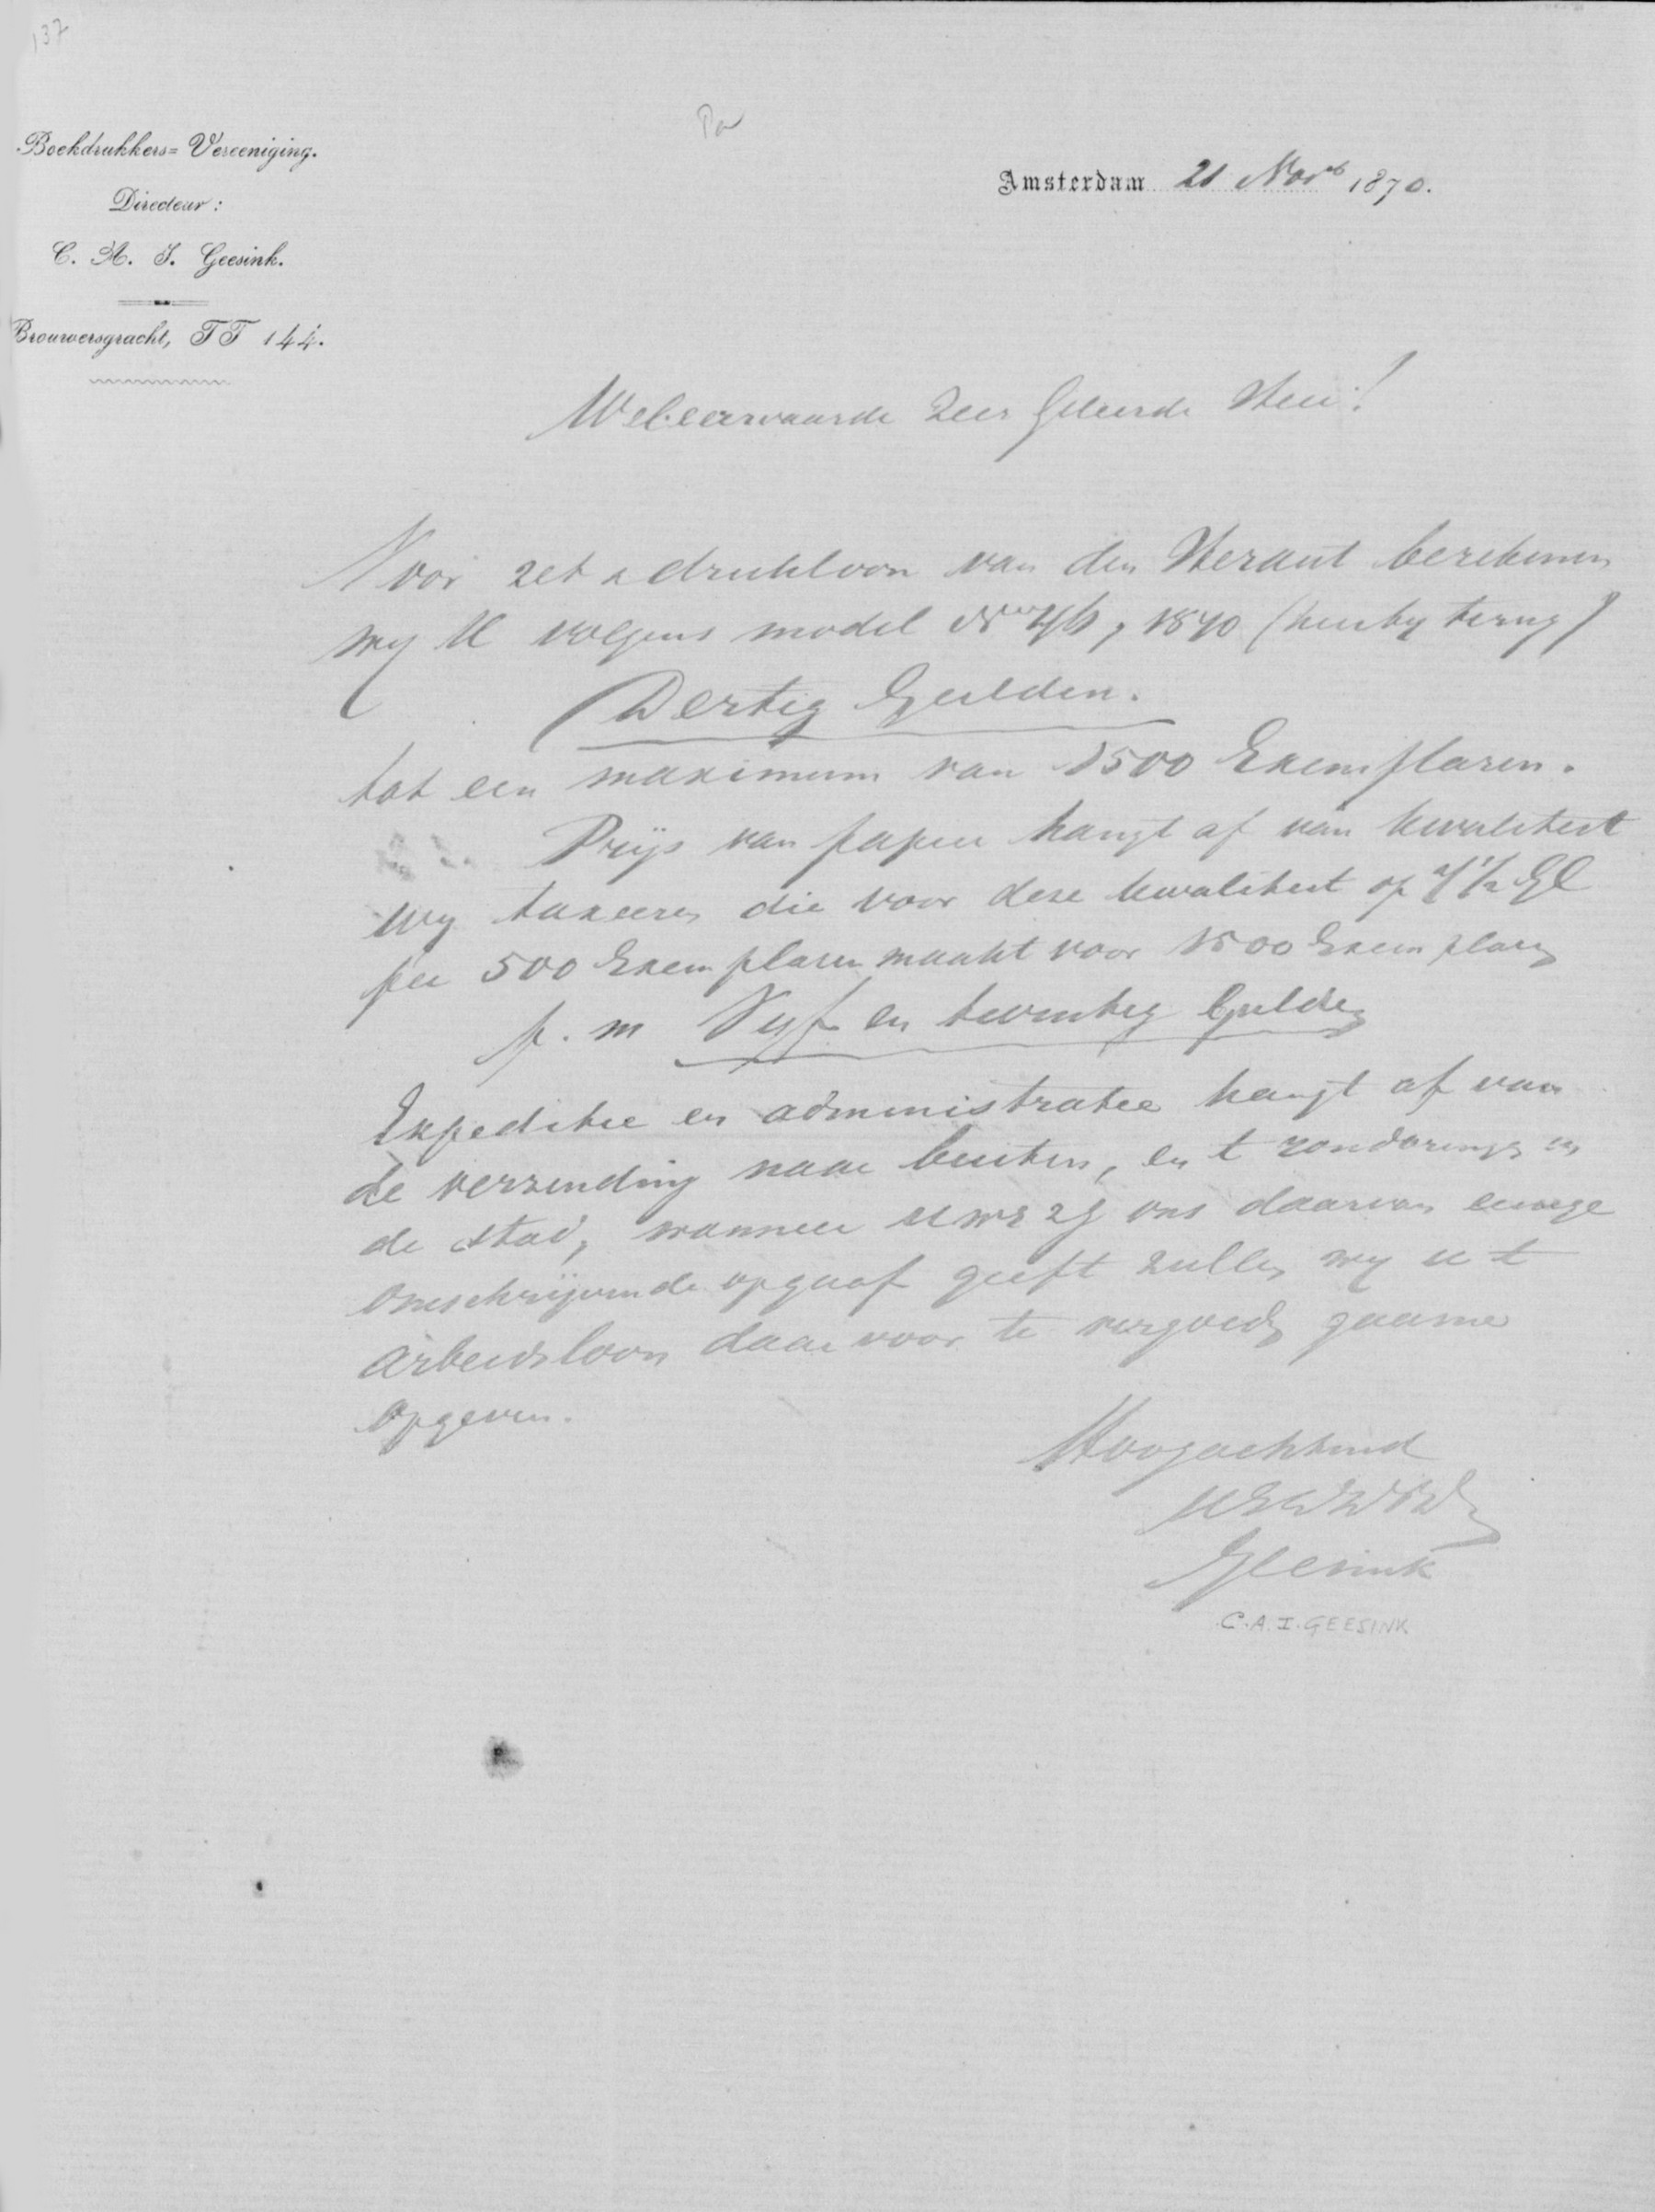 137
Pa
Boekdrukkers= Vereeniging.
Directeur:
C. A. J. Geesink.
Brouwersgracht, TT 144.
Amsterdam 21 Novb 1870.
Weleerwaarde Zeer Geleerde Heer!
Voor zet & drukloon van den Heraut berekenen
wy U volgens model No 46, 1870 (hierby terug)
Dertig Gulden.
tot een maximum van 1500 Exemplaren.
Prijs van papier hangt af van kwaliteit
wy taxeeren die voor deze kwaliteit op
per 500 Exemplaren maakt voor 1500 Exemplaren
p. m Vyf en twintig Gulden
Expeditie en administratie hangt af van
de verzending naar buiten, en t rondbrengen in
de stad, wanneer UWEZG ons daarvan eenige
omschrijvende opgaaf geeft zullen wy u t
arbeidsloon daarvoor te vergoeden gaarne
opgeven.
Hoogachtend
Geesink
C.A.I. GEESINK